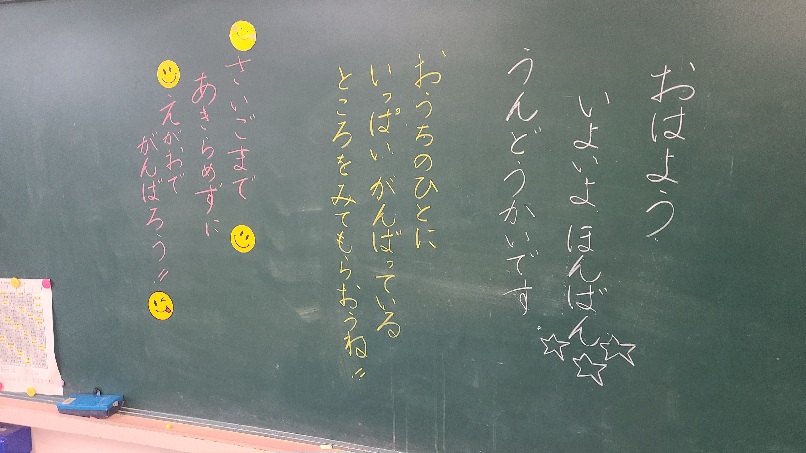 おはよう
いよいよ ほんばん
うんどうかいです
おうちのひとに
いっぱい がんばっている
ところをみてもらおうね!!
さいごまで
あきらめずに
えがおで
がんばろう!!